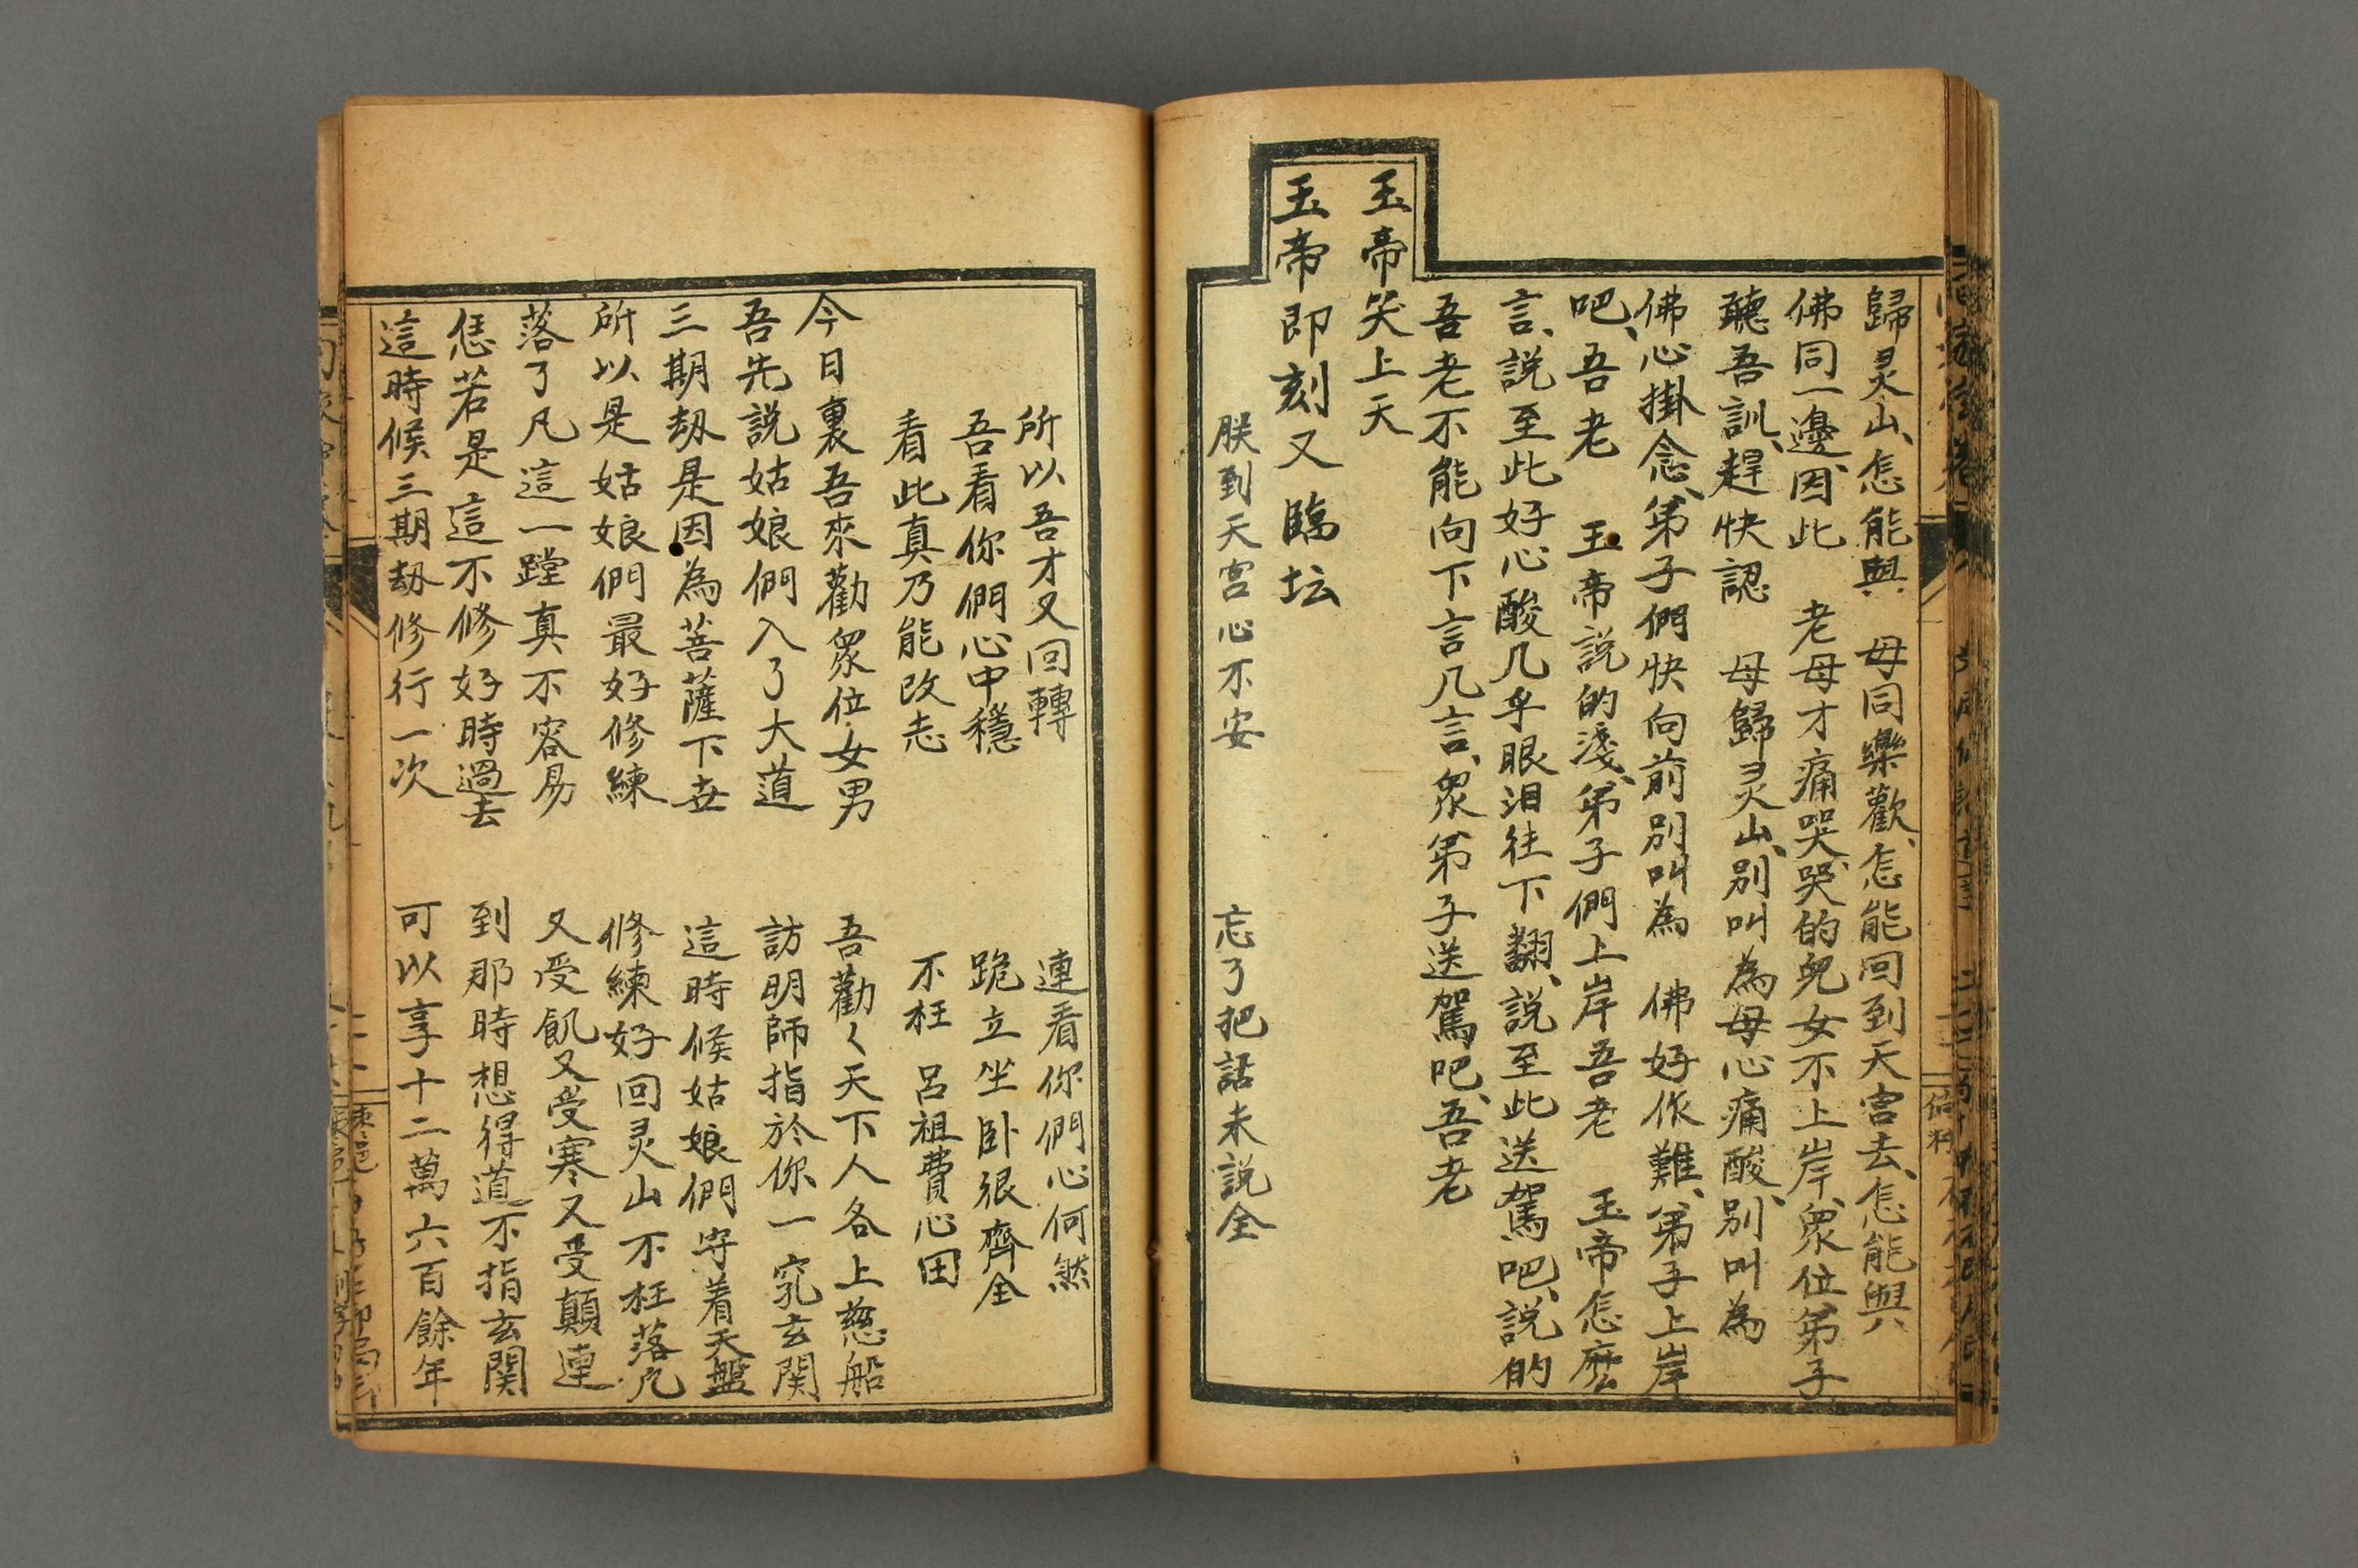 歸灵山、怎能與　母同樂歡、怎能回到天宫去、怎能與
佛同一邊、因此　老母才痛哭、哭的兒女不上岸、衆位弟子
聽吾訓、趕快認　母歸灵山、别叫為母心痛酸、别叫為
佛心掛念、弟子們快向前别叫為　佛好作難、弟子上岸
吧、吾老　玉帝説的淺、弟子們上岸吾老　玉帝怎麽
言、説至此好心酸几乎眼泪往下翻、説至此送駕吧、説的
吾老不能向下言几言、衆弟子送駕吧、吾老
玉帝笑上天
玉帝即刻又臨坛
朕到天宫心不安　忘了把話未説全
所以吾才又回轉　連看你們心何然
吾看你們心中穩　跪立坐卧很齊全
看此真乃能改志　不枉　吕祖費心田
今日裏吾來勸衆位女男　吾勸〱天下人各上慈船
吾先説姑娘們入了大道　訪明師指於你一竅玄関
三期劫是因為菩薩下世　這時候姑娘們守着天盤
所以是姑娘們最好修練　修練好回灵山不枉落凡
落了凡這一蹚真不容易　又受飢又受寒又受顛連
恁若是這不修好時過去　到那時想得道不指玄関
這時候三期劫修行一次　可以享十二萬六百餘年